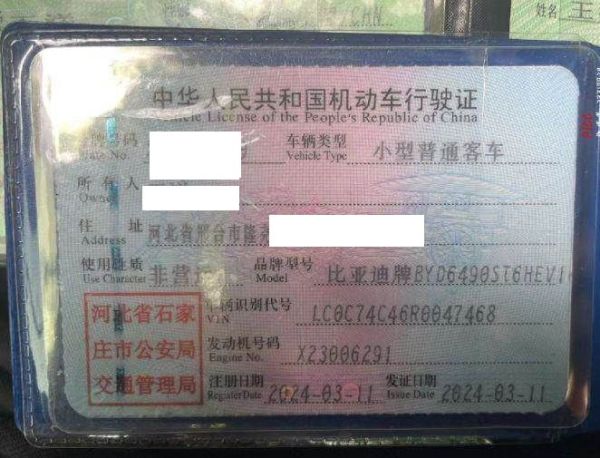 姓名 王
中华人民共和国机动车行驶证
License of the People's Republic of China
号码 车辆类型 小型普通客车
Plate No. Vehicle Type
所有人
Owner
住址 河北省邢台市隆
Address
使用性质 非营运 品牌型号 比亚迪牌BYD6490ST6HEV1
Use Character Model
河北省石家 车辆识别代号 LC0C74C46R0047468
VIN
庄市公安局 发动机号码 X23006291
Engine No.
交通管理局 注册日期 2024-03-11 发证日期 2024-03-11
Register Date Issue Date